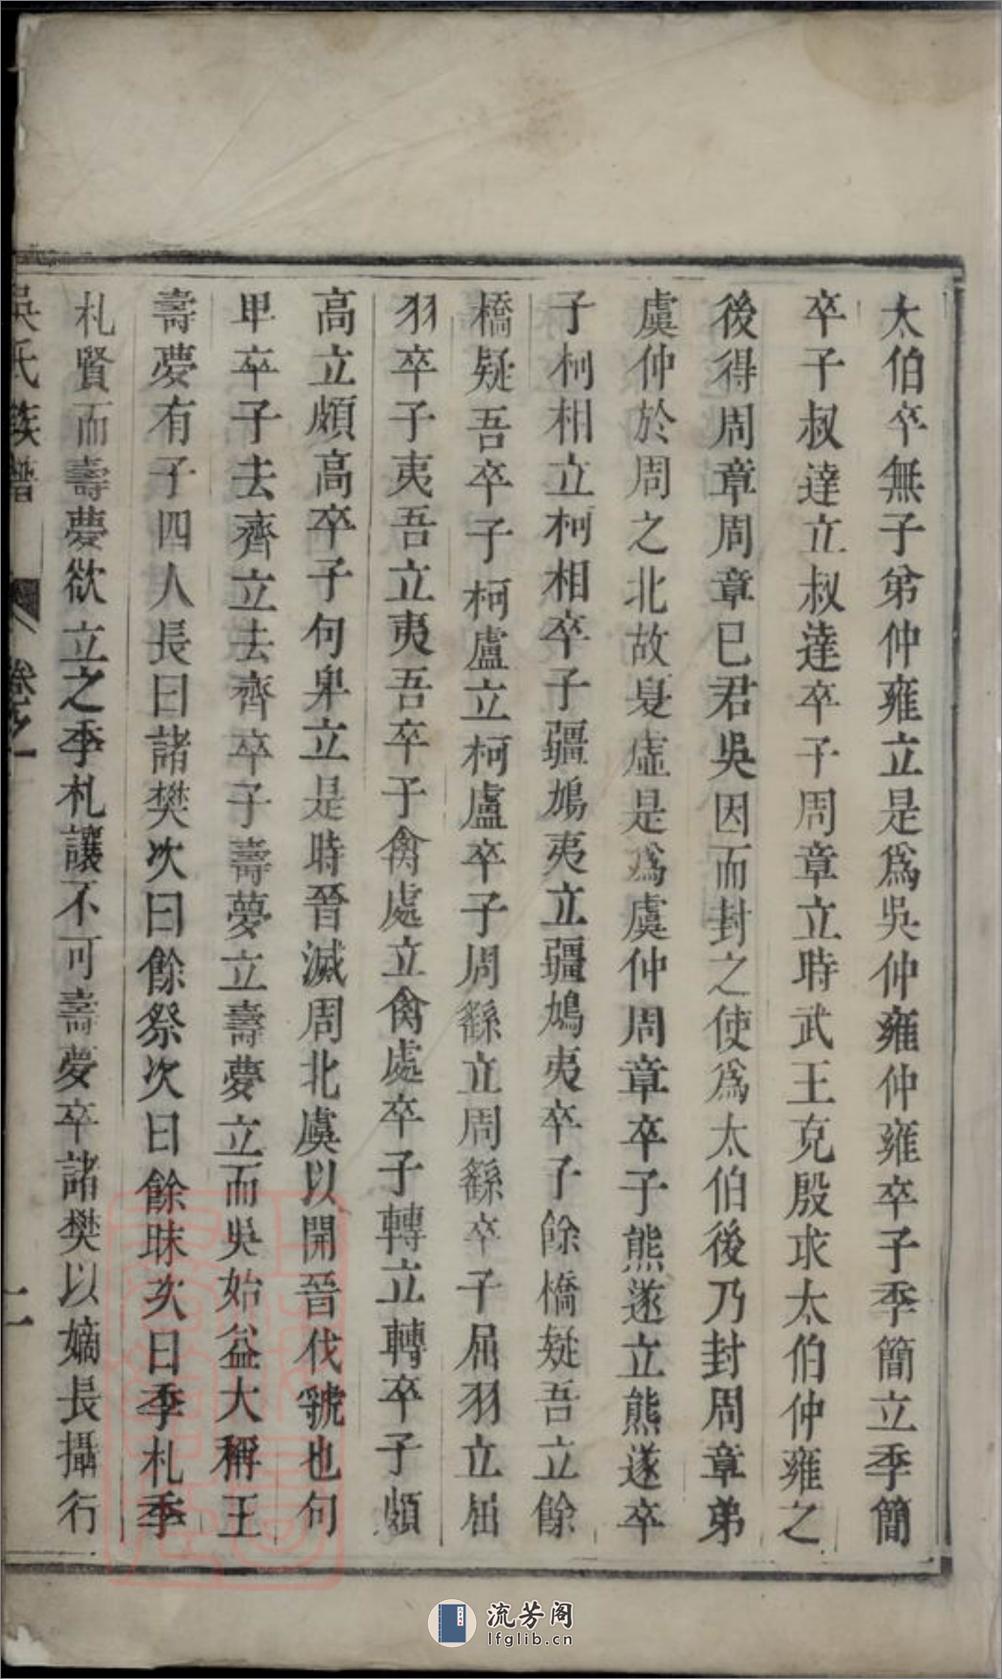 太伯卒無子弟仲雍立是爲吳仲雍仲雍卒子季簡立季簡
卒子叔達立叔達卒子周章立時武王克殷求太伯仲雍之
後得周章周章已君吳因而封之使爲太伯後乃封周章弟
虞仲於周之北故夏虛是爲虞仲周章卒子熊遂立熊遂卒
子柯相立柯相卒子疆鳩夷立疆鳩夷卒子餘橋疑吾立餘
橋疑吾卒子柯盧立柯盧卒子周繇立周繇卒子屈羽立屈
羽卒子夷吾立夷吾卒子禽處立禽處卒子轉立轉卒子頗
高立頗高卒子句卑立是時晉滅周北虞以開晉伐虢也句
卑卒子去齊立去齊卒子壽夢立壽夢立而吳始益大稱王
壽夢有子四人長曰諸樊次曰餘祭次曰餘昧次曰季札季
札賢而壽夢欲立之季札讓不可壽夢卒諸樊以嫡長攝行
吳氏族譜 卷之一 二
流芳阁
lfglib.cn